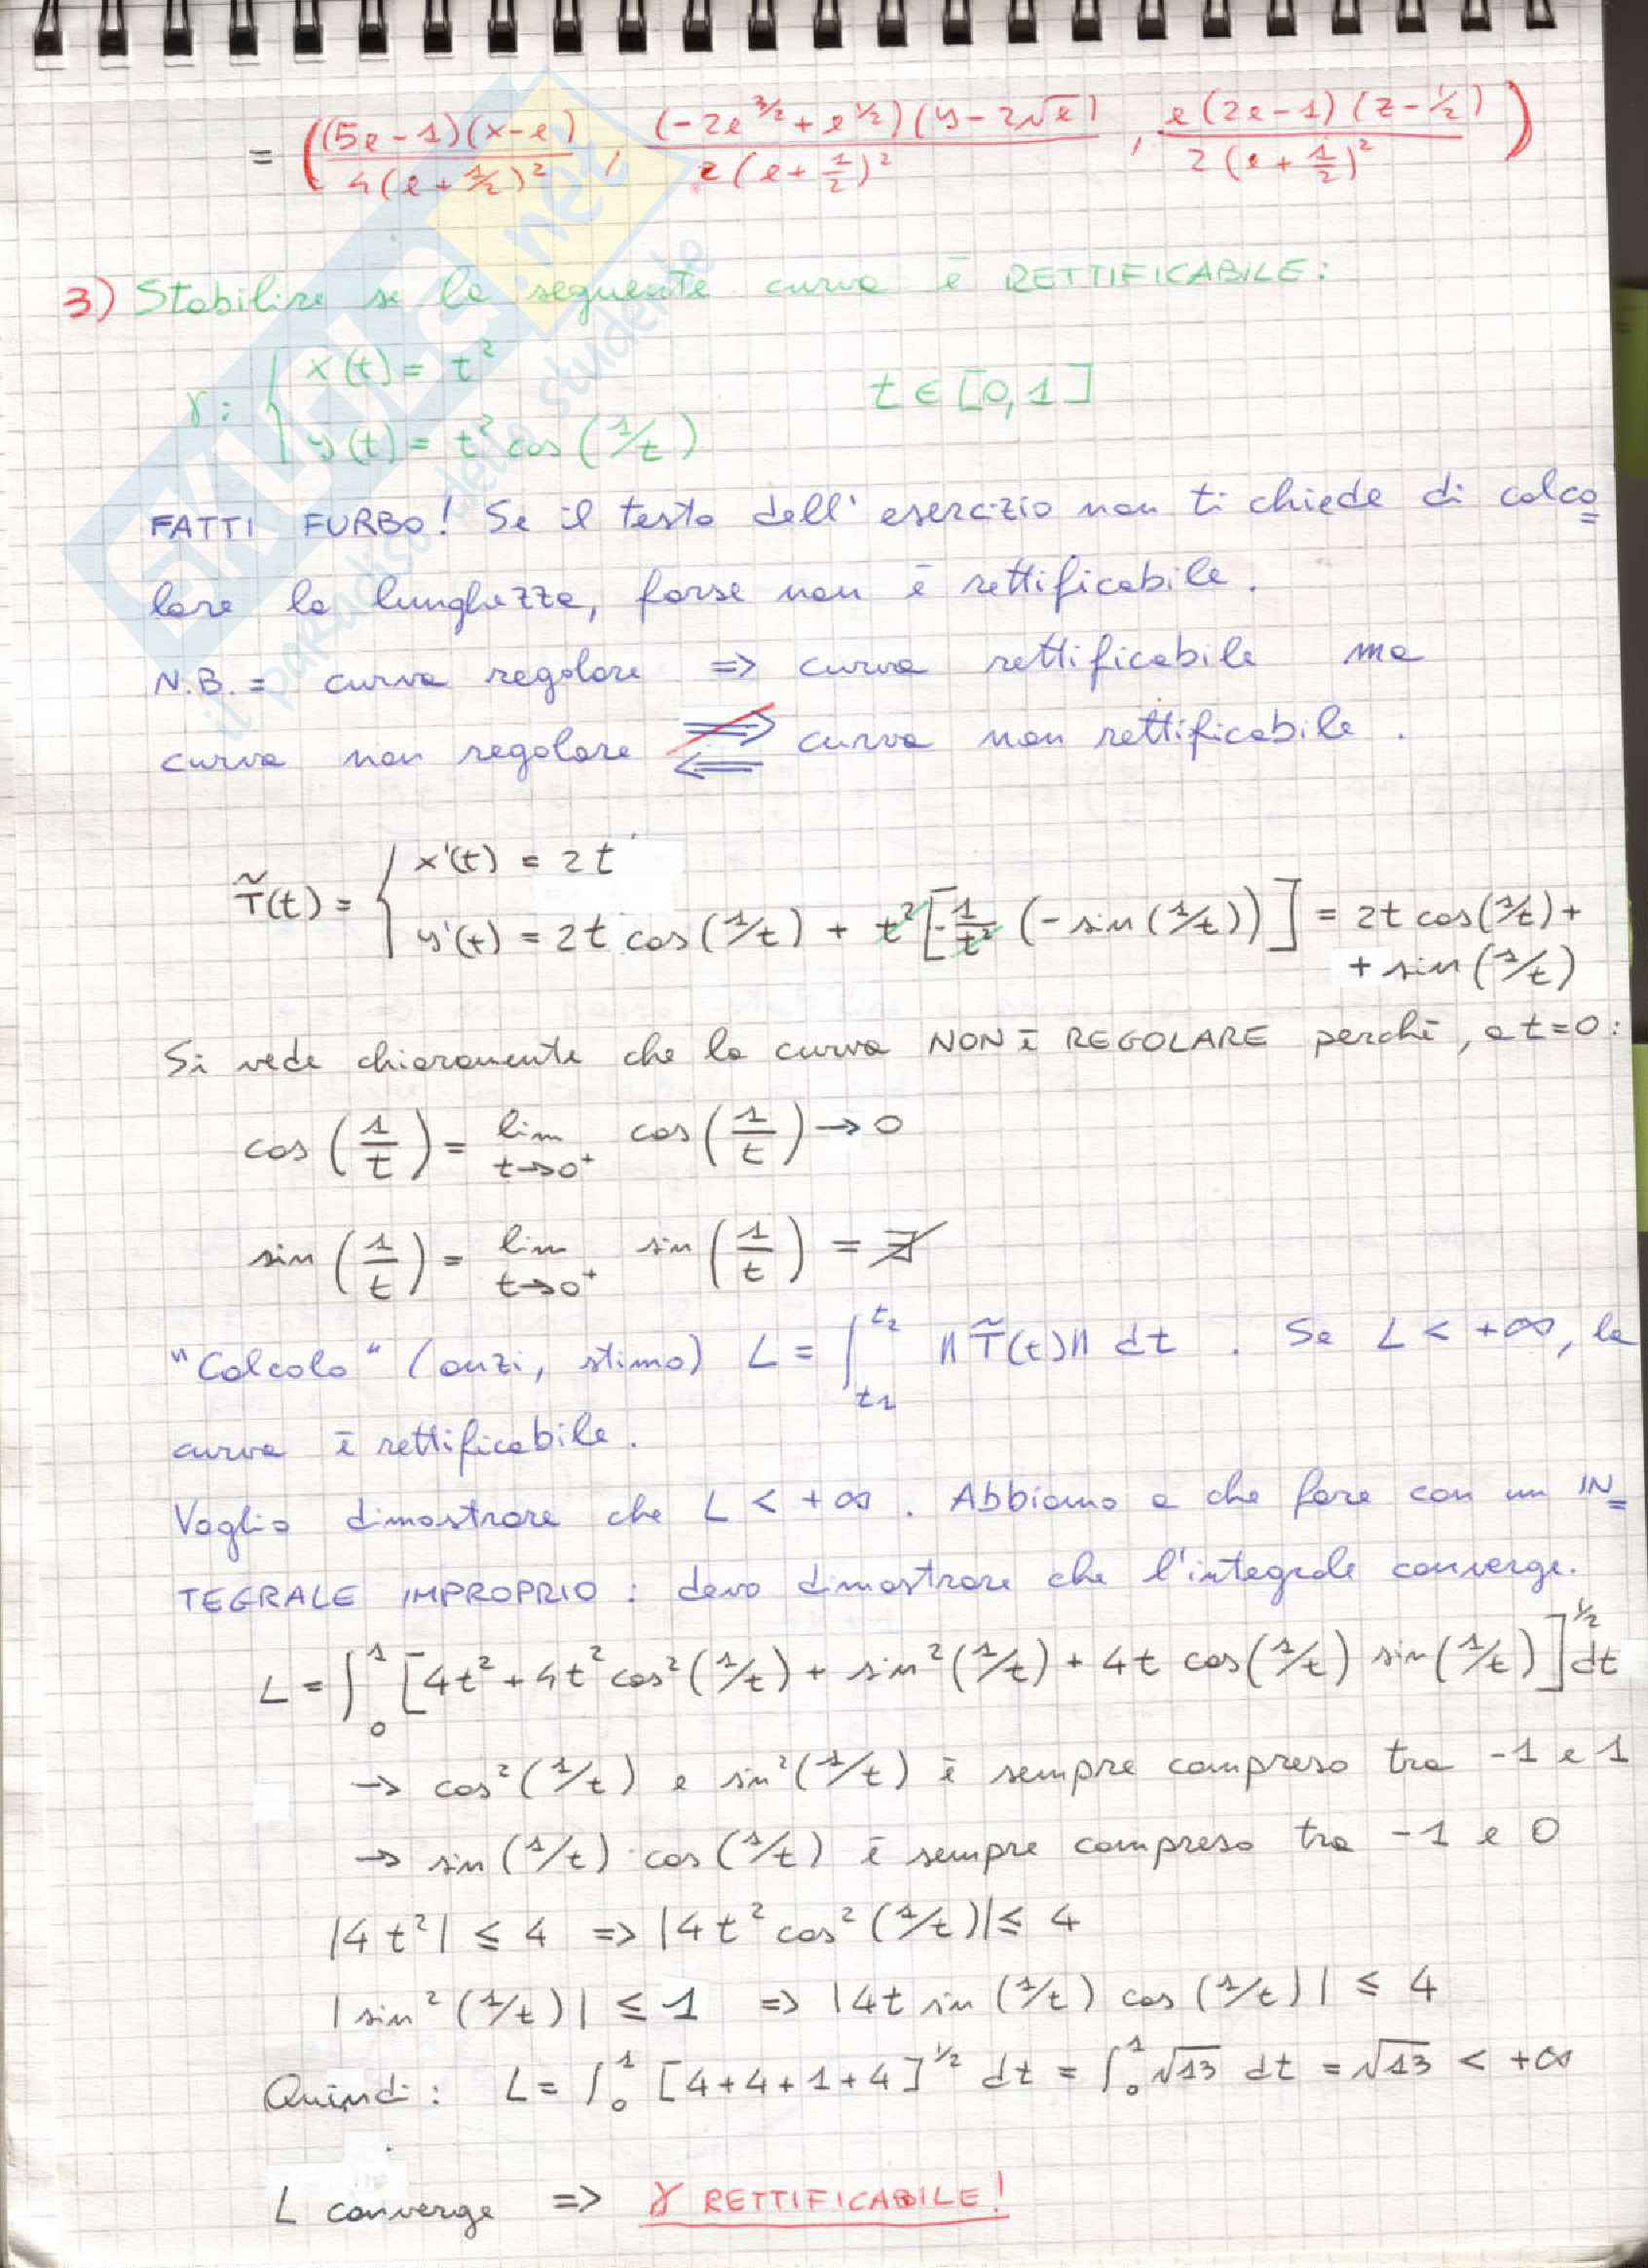 = ( (5e-1)(x-e) / 4(e+1/2)² , (-2e^{3/2}+e^{1/2})(y-2√e) / 2(e+1/2)² , e(2e-1)(z-1/2) / 2(e+1/2)² )
3) Stabilire se la seguente curva è RETTIFICABILE:
γ: { x(t) = t²
y(t) = t² cos(1/t) t ∈ [0,1]
FATTI FURBO! Se il testo dell'esercizio non ti chiede di calco=
lare la lunghezza, forse non è rettificabile.
N.B.= curva regolare => curva rettificabile ma
curva non regolare ⇏ ⇐ curva non rettificabile.
T̃(t) = { x'(t) = 2t
y'(t) = 2t cos(1/t) + t² [-1/t² (-sin(1/t))] = 2t cos(1/t) +
+ sin(1/t)
Si vede chiaramente che la curva NON È REGOLARE perchè, a t=0:
cos(1/t) = lim t→0⁺ cos(1/t) → 0
sin(1/t) = lim t→0⁺ sin(1/t) = ∄
"Calcolo" (anzi, stimo) L = ∫_{t1}^{t2} ‖T̃(t)‖ dt . Se L < +∞, la
curva è rettificabile.
Voglio dimostrare che L < +∞. Abbiamo a che fare con un IN=
TEGRALE IMPROPRIO: devo dimostrare che l'integrale converge.
L = ∫_0^1 [4t² + 4t² cos²(1/t) + sin²(1/t) + 4t cos(1/t) sin(1/t)]^{1/2} dt
→ cos²(1/t) e sin²(1/t) è sempre compreso tra -1 e 1
→ sin(1/t)·cos(1/t) è sempre compreso tra -1 e 0
|4t²| ≤ 4 => |4t² cos²(1/t)| ≤ 4
|sin²(1/t)| ≤ 1 => |4t sin(1/t) cos(1/t)| ≤ 4
Quindi: L = ∫_0^1 [4+4+1+4]^{1/2} dt = ∫_0^1 √13 dt = √13 < +∞
L converge => γ RETTIFICABILE!
SKUOLA.net
il paradiso dello studente